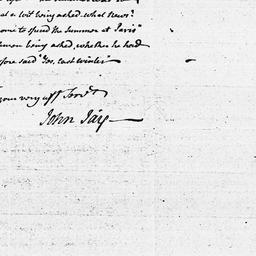 a wit being asked what News?
come to spend the Summer at Paris"
being asked, whether he had
fore said "Yes, last winter"
your very aff Servt
John Jay